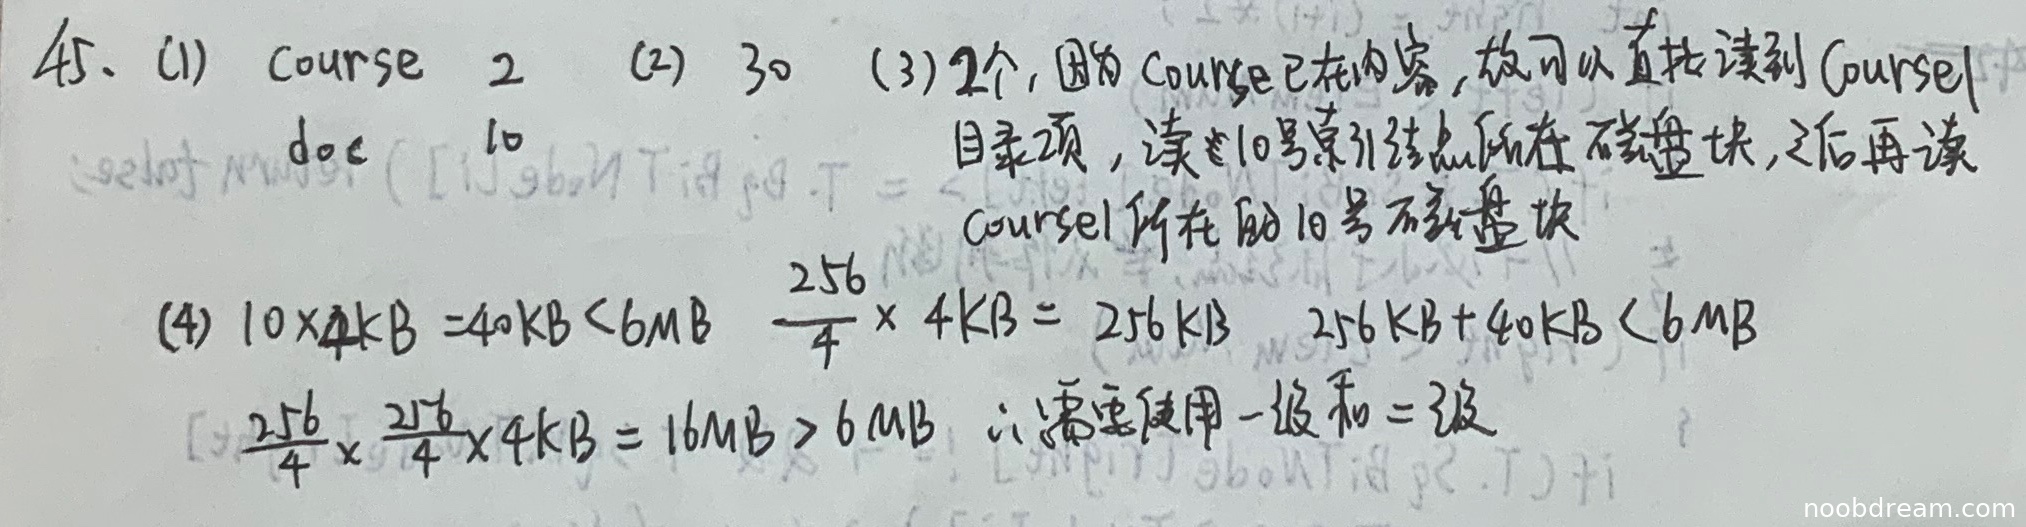 45、(1) course 2 (2) 30 (3) 2个,因为course已在内容,故可以直接读到course1
doc 10 目录项,读10号索引结点所在磁盘块,之后再读
course1所在的10号磁盘块
(4) 10×4KB=40KB<6MB 256/4 × 4KB = 256KB 256KB+40KB<6MB
256/4 × 256/4 × 4KB = 16MB > 6MB ∴需要使用一级和二级
noobdream.com